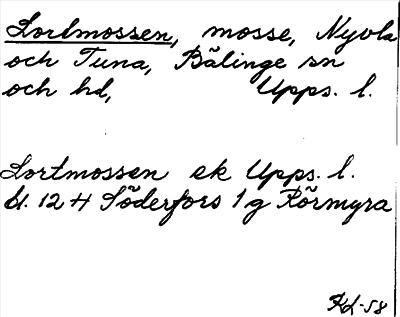 Lortmossen, mosse, Nyvla
och Tuna, Bälinge sn
och hd, Upps. l.
Lortmossen ek Upps. l.
bl. 12 H Söderfors 1 g Rörmyra
KL-58